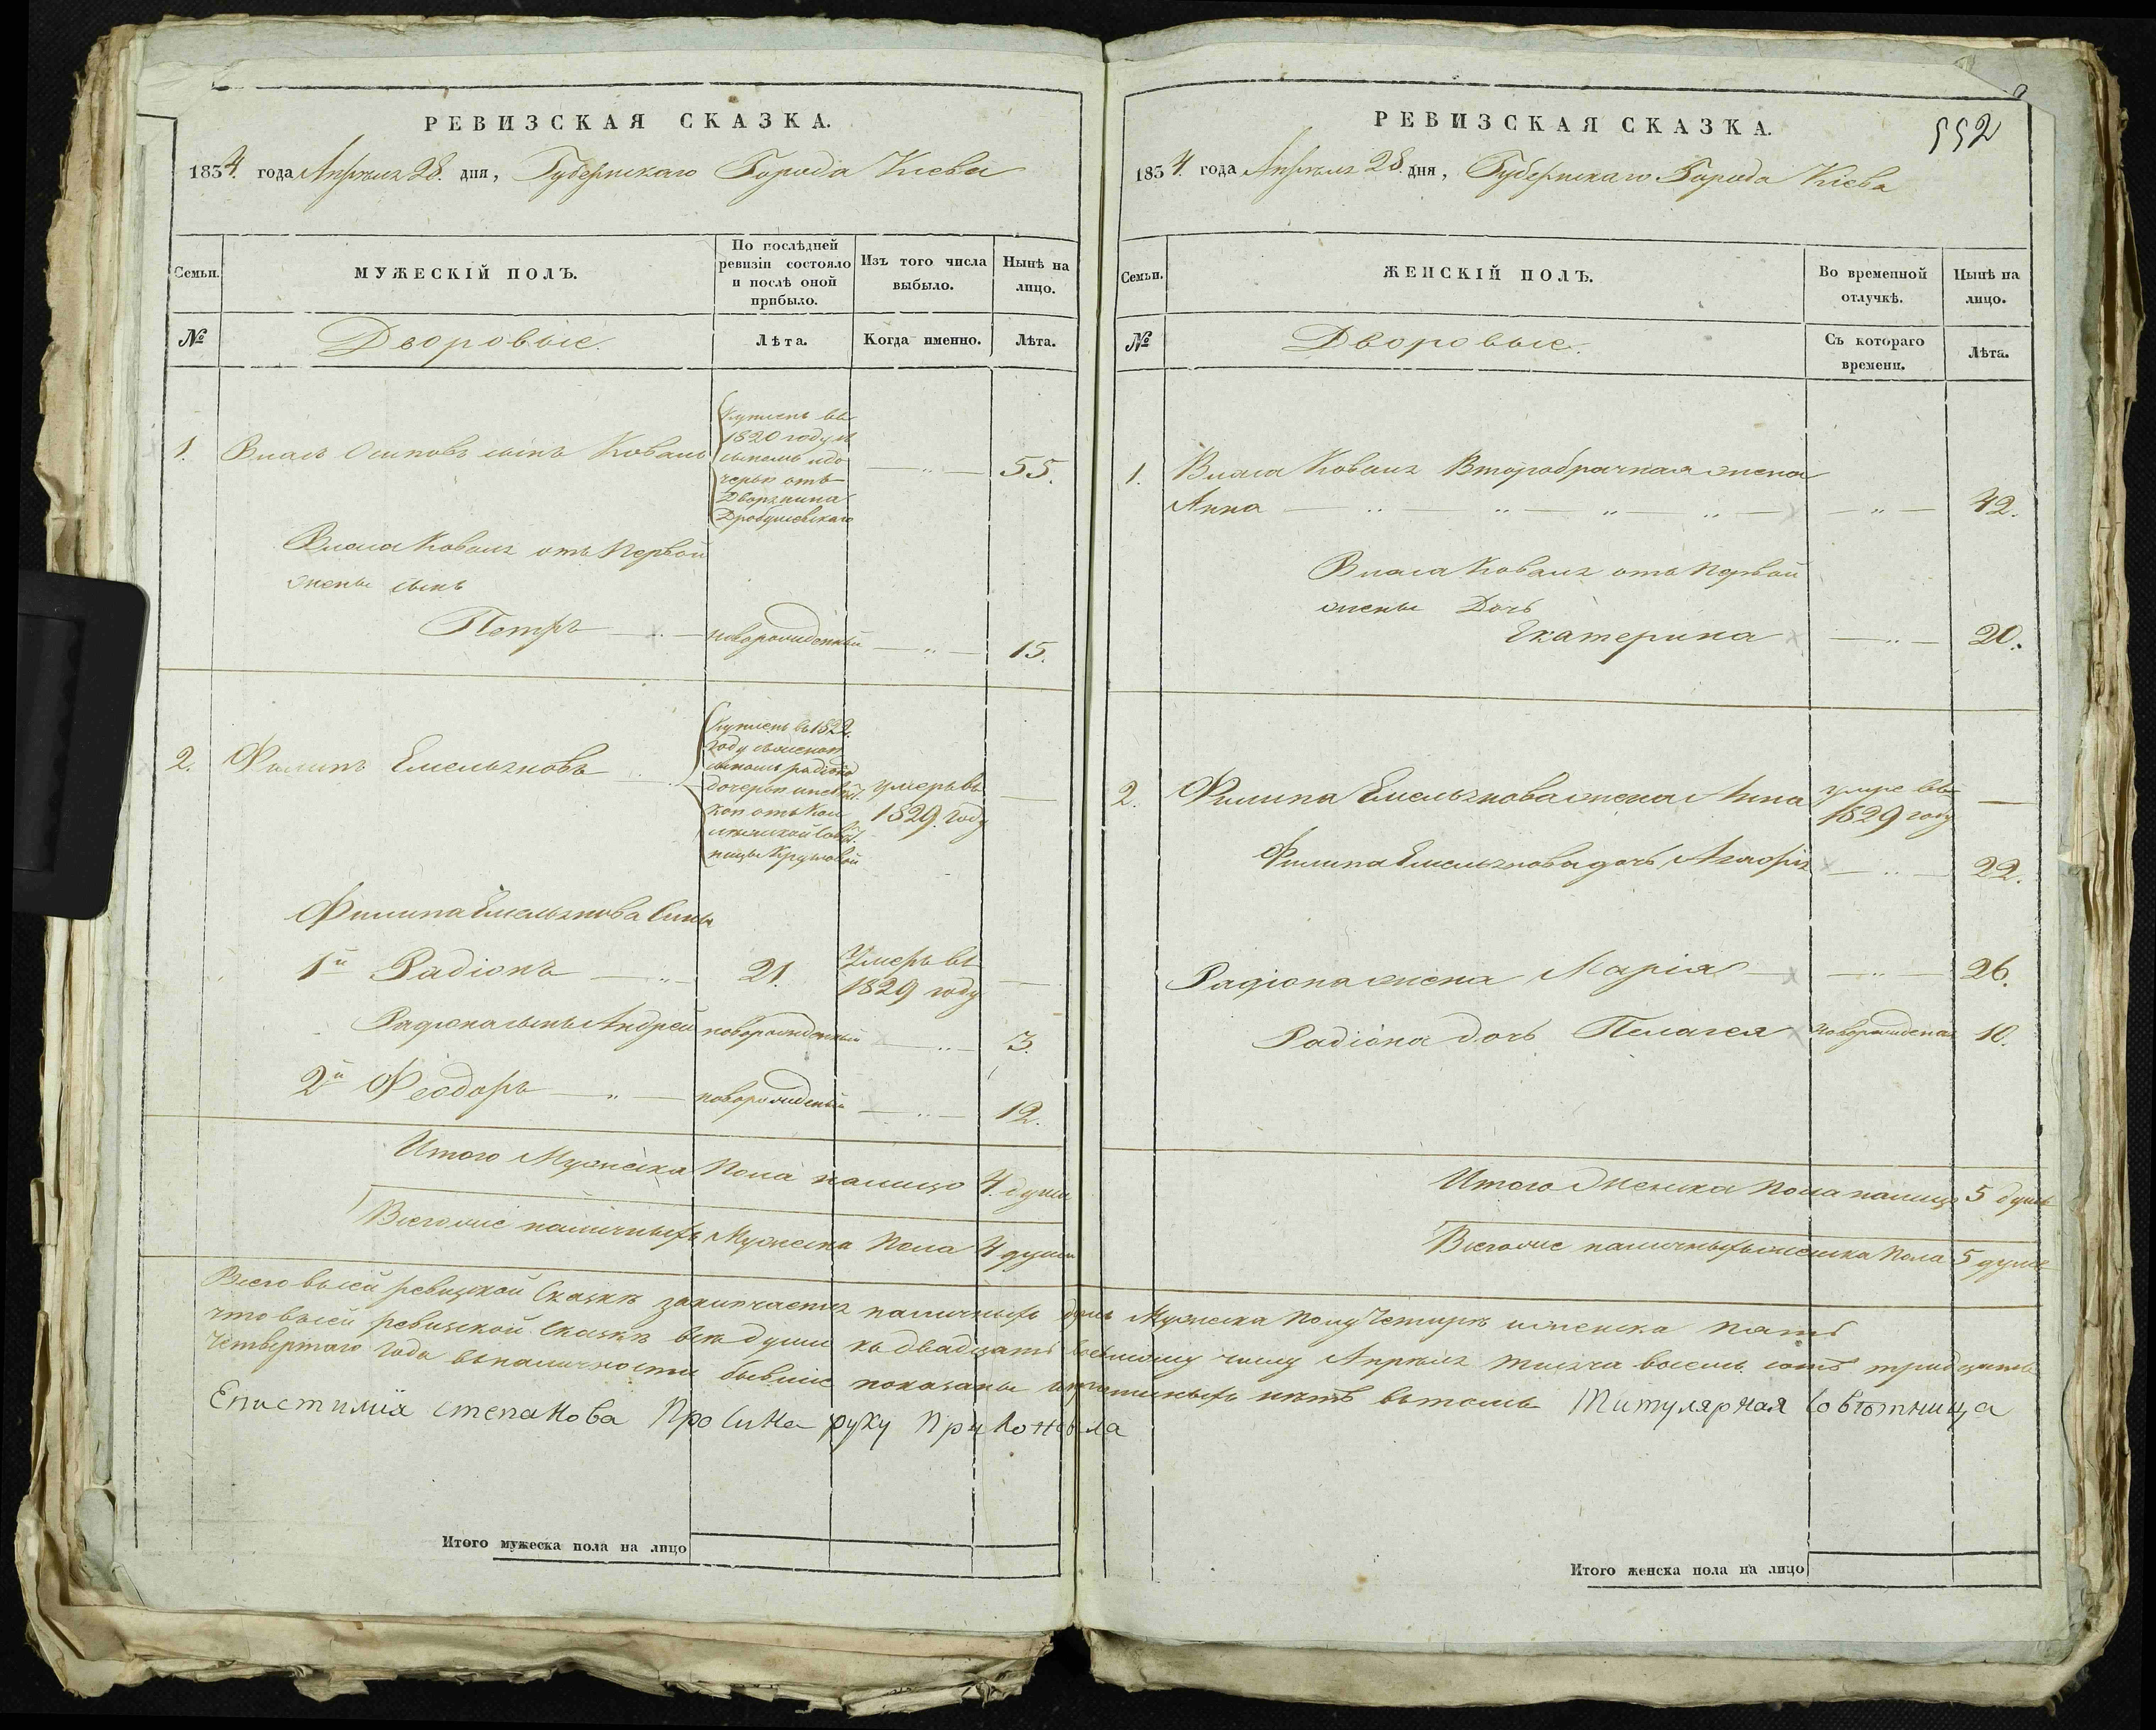 РЕВИЗСКАЯ СКАЗКА.
1834. года Апрѣля 28. дня, Губернскаго Города Кіева
Семьи.
МУЖЕСКІЙ ПОЛЪ.
По послѣдней
ревизіи состояло
и послѣ оной
прибыло.
Изъ того числа
выбыло.
Нынѣ на
лицо.
№
Дворовые.
Лѣта.
Когда именно.
Лѣта.
1. Власъ Осиповъ сынъ Коваль
Купленъ въ
1820 году съ
сыномъ и до
черью отъ
Дворянина
Дробушевскаго
— " —
55.
Власа Коваля отъ первой
жены сынъ
Петръ — " — новорожденный — " — 15.
2. Филипъ Емельяновъ "
Купленъ въ 1822.
году съ женою
сыномъ радіоно
дочерью и невѣст.
кою отъ Кол
совѣт.
ницы Круповой
умеръ въ
1829. году
—
Филипа Емельянова Сыны
1й Радіонъ — " — 21. Умеръ въ
1829 году —
Радіона сынъ Андрей новорожденный — " — 3.
2й Феодоръ — " — новорожденый — " — 12.
Итого Мужеска Пола налицо 4. души
Всего же наличныхъ Мужеска Пола 4 души
РЕВИЗСКАЯ СКАЗКА.
552
1834. года Апрѣля 28. дня, Губернскаго Города Кіева
Семьи.
ЖЕНСКІЙ ПОЛЪ.
Во временной
отлучкѣ.
Нынѣ на
лицо.
№
Дворовые.
Съ котораго
времени.
Лѣта.
1. Власа Коваля Второбрачная жена
Анна — " — " — " — " — — " — 42.
Власа Коваля отъ первой
жены Дочь
Екатерина — " — 20.
2. Филипа Емельянова жена Анна умре въ
1829 году —
Филипа Емельянова дочь Агафія — " — 22.
Радіона жена Марія — — " — 26.
Радіона дочь Пелагея новорожденая 10.
Итого Женска Пола налицо 5 душъ
Всего же наличныхъ женска Пола 5 душъ
Всего въ сей ревизской Сказкѣ заключается наличныхъ душъ Мужеска полу Четыре и женска пять
что въ сей ревизской Сказкѣ всѣ души къ двадцать восьмому числу Апрѣля тысяча восемь сотъ тридцать
Четвертаго года въ наличности бывшіе показаны и прописныхъ нѣтъ въ томъ Титулярная Совѣтница
Епистимія степанова Про Сина руку Приложила
Итого мужеска пола на лицо
Итого женска пола на лицо